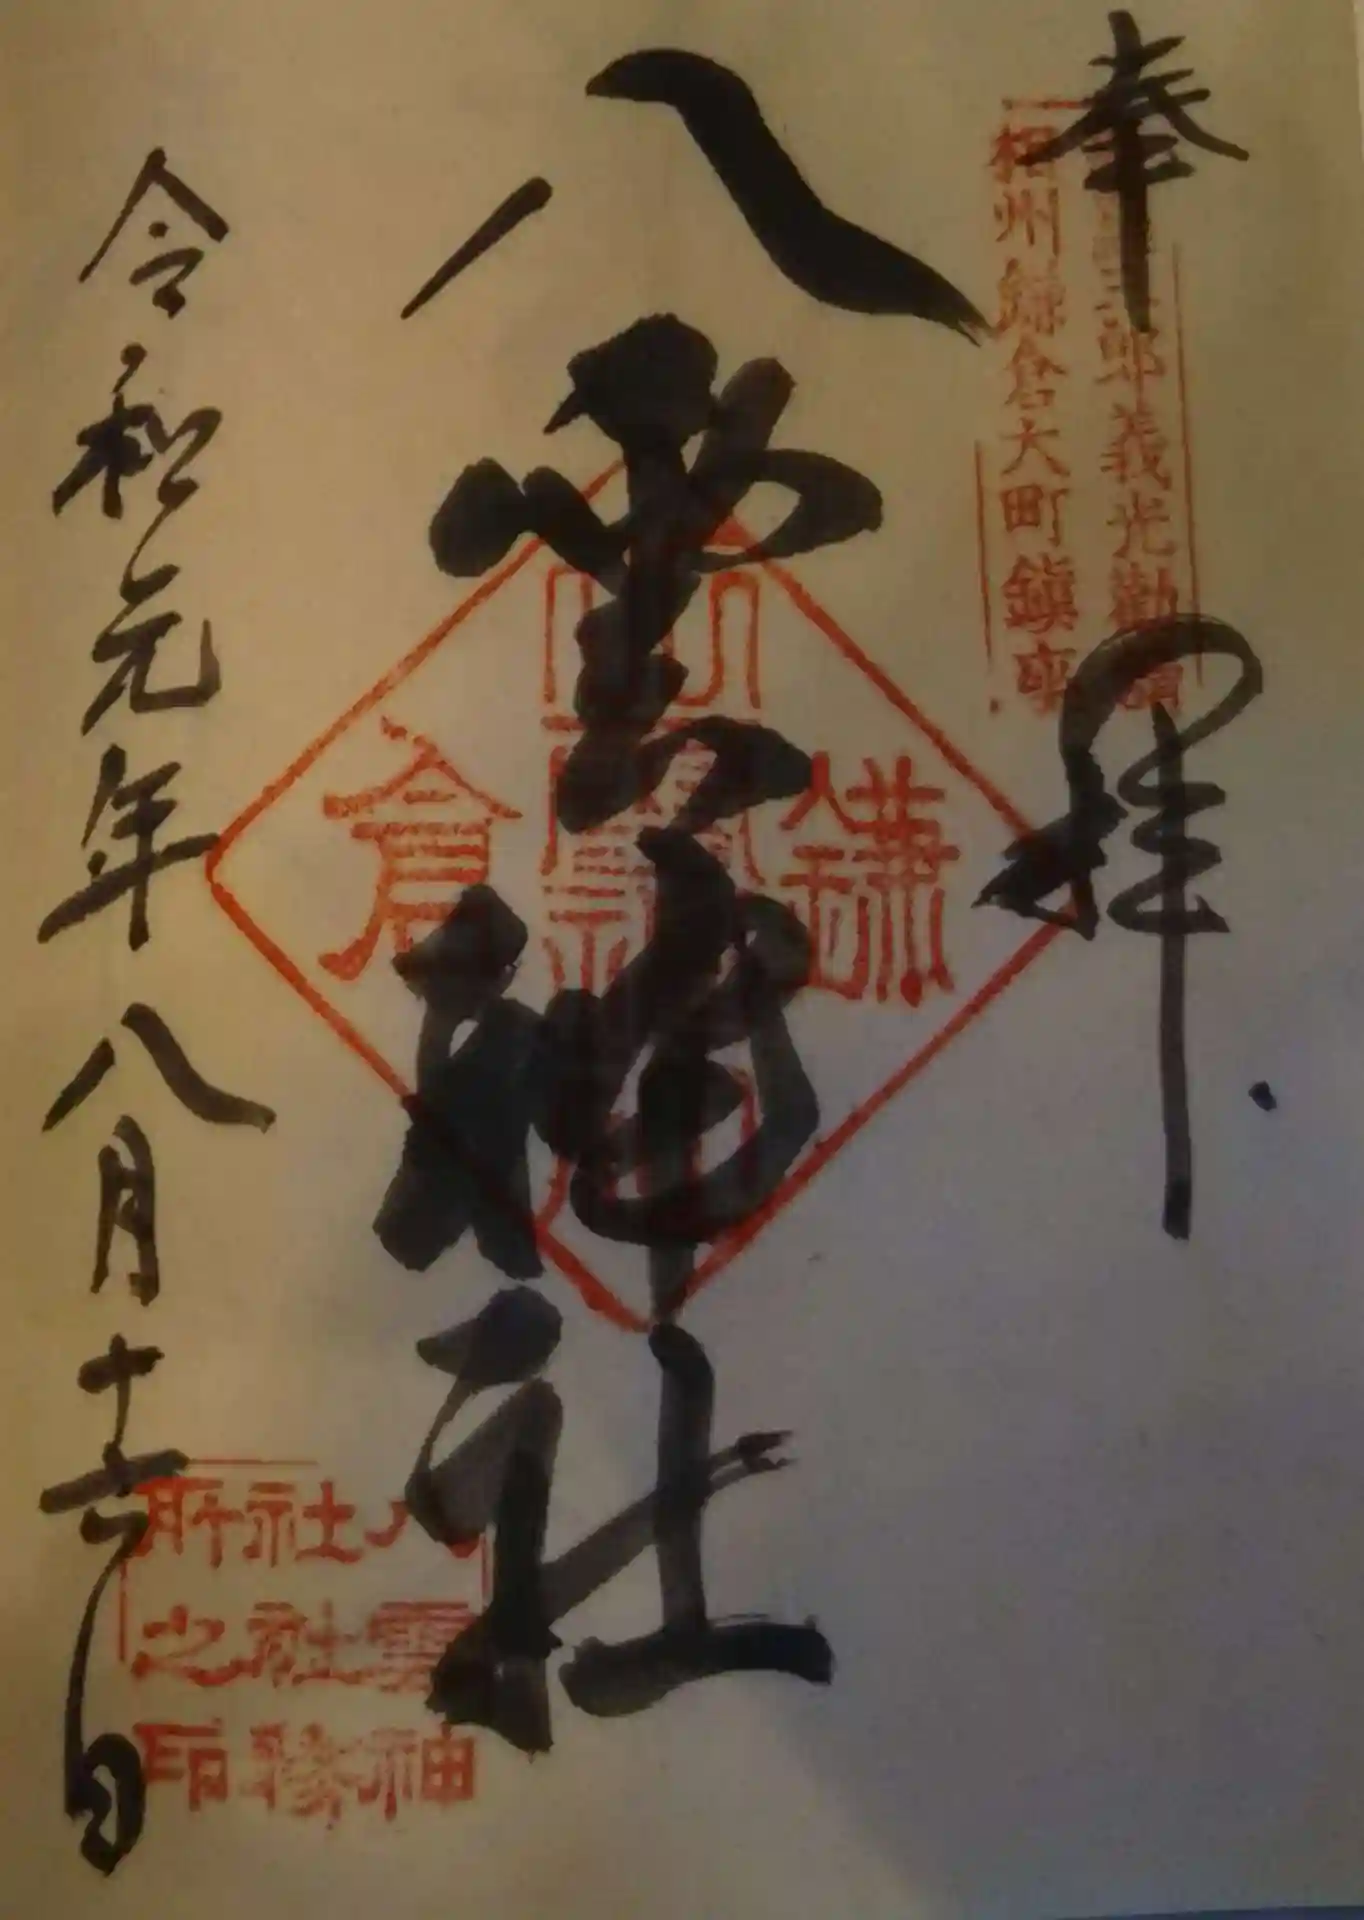 奉拝
三郎義光勧請
相州鎌倉大町鎮座
八雲神社
鎌倉
八雲神
社社務
所之印
令和元年八月十六日